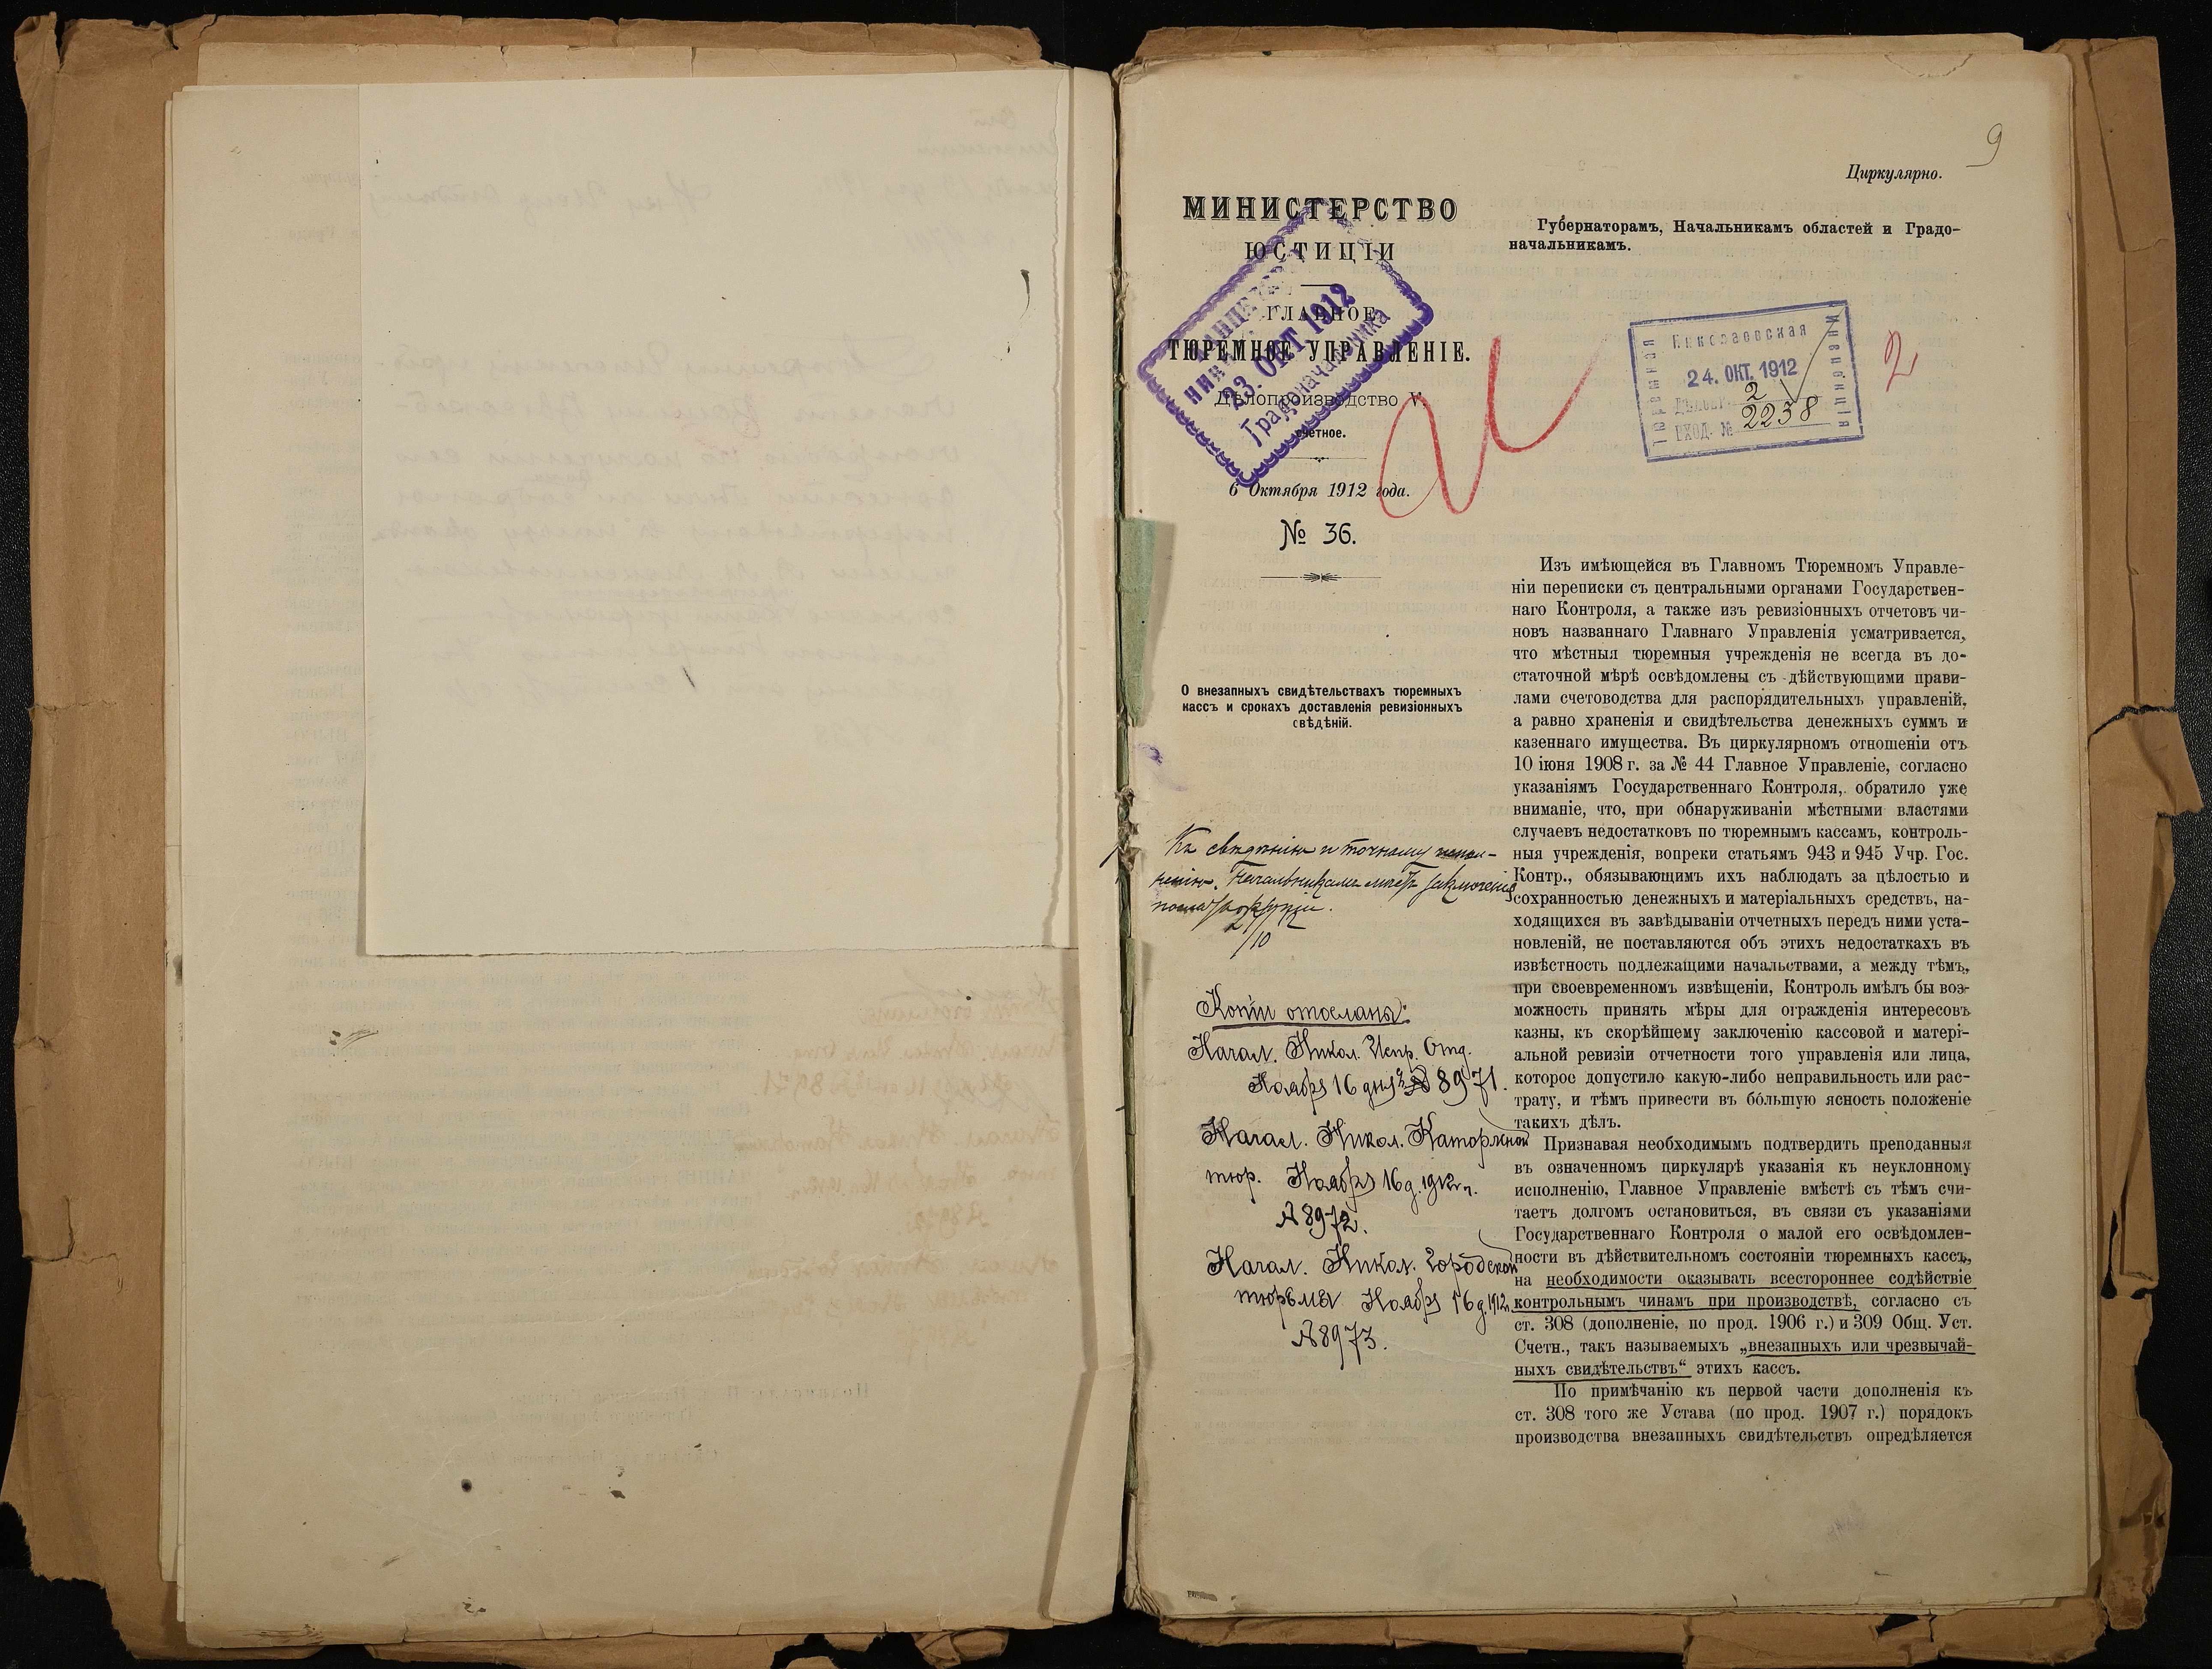 9
Циркулярно.
МИНИСТЕРСТВО
ЮСТИЦІИ
ГЛАВНОЕ
ТЮРЕМНОЕ УПРАВЛЕНІЕ.
Дѣлопроизводство V.
счетное.
6 Октября 1912 года.
№ 36.
23. ОКТ 1912
Градоначальника
Губернаторамъ, Начальникамъ областей и Градо-
начальникамъ.
Николаевская
Тюремная
Инспекція
24. ОКТ. 1912
2
ВХОД. № 2238
2
О внезапныхъ свидѣтельствахъ тюремныхъ
кассъ и срокахъ доставленія ревизіонныхъ
свѣдѣній.
Къ свѣдѣнію и точному испол-
ненію. Начальникамъ мѣстъ заключенія
/10
Копіи отосланы:
Начал. Никол. Испр. Отд.
Ноября 16 дня № 8971.
Начал. Никол. Каторжной
тюр. Ноября 16 д. 1912 г.
№ 8972.
Начал. Никол. Городской
тюрьмы Ноября 16 д. 1912 г.
№ 8973.
Изъ имѣющейся въ Главномъ Тюремномъ Управле-
ніи переписки съ центральными органами Государствен-
наго Контроля, а также изъ ревизіонныхъ отчетовъ чи-
новъ названнаго Главнаго Управленія усматривается,
что мѣстныя тюремныя учрежденія не всегда въ до-
статочной мѣрѣ освѣдомлены съ дѣйствующими прави-
лами счетоводства для распорядительныхъ управленій,
а равно храненія и свидѣтельства денежныхъ суммъ и
казеннаго имущества. Въ циркулярномъ отношеніи отъ
10 іюня 1908 г. за № 44 Главное Управленіе, согласно
указаніямъ Государственнаго Контроля, обратило уже
вниманіе, что, при обнаруживаніи мѣстными властями
случаевъ недостатковъ по тюремнымъ кассамъ, контроль-
ныя учрежденія, вопреки статьямъ 943 и 945 Учр. Гос.
Контр., обязывающимъ ихъ наблюдать за цѣлостью и
сохранностью денежныхъ и матеріальныхъ средствъ, на-
ходящихся въ завѣдываніи отчетныхъ передъ ними уста-
новленій, не поставляются объ этихъ недостаткахъ въ
извѣстность подлежащими начальствами, а между тѣмъ,
при своевременномъ извѣщеніи, Контроль имѣлъ бы воз-
можность принять мѣры для огражденія интересовъ
казны, къ скорѣйшему заключенію кассовой и матері-
альной ревизіи отчетности того управленія или лица,
которое допустило какую-либо неправильность или рас-
трату, и тѣмъ привести въ бо́льшую ясность положеніе
такихъ дѣлъ.
Признавая необходимымъ подтвердить преподанныя
въ означенномъ циркулярѣ указанія къ неуклонному
исполненію, Главное Управленіе вмѣстѣ съ тѣмъ счи-
таетъ долгомъ остановиться, въ связи съ указаніями
Государственнаго Контроля о малой его освѣдомлен-
ности въ дѣйствительномъ состояніи тюремныхъ кассъ,
на необходимости оказывать всестороннее содѣйствіе
контрольнымъ чинамъ при производствѣ, согласно съ
ст. 308 (дополненіе, по прод. 1906 г.) и 309 Общ. Уст.
Счетн., такъ называемыхъ „внезапныхъ или чрезвычай-
ныхъ свидѣтельствъ“ этихъ кассъ.
По примѣчанію къ первой части дополненія къ
ст. 308 того же Устава (по прод. 1907 г.) порядокъ
производства внезапныхъ свидѣтельствъ опредѣляется